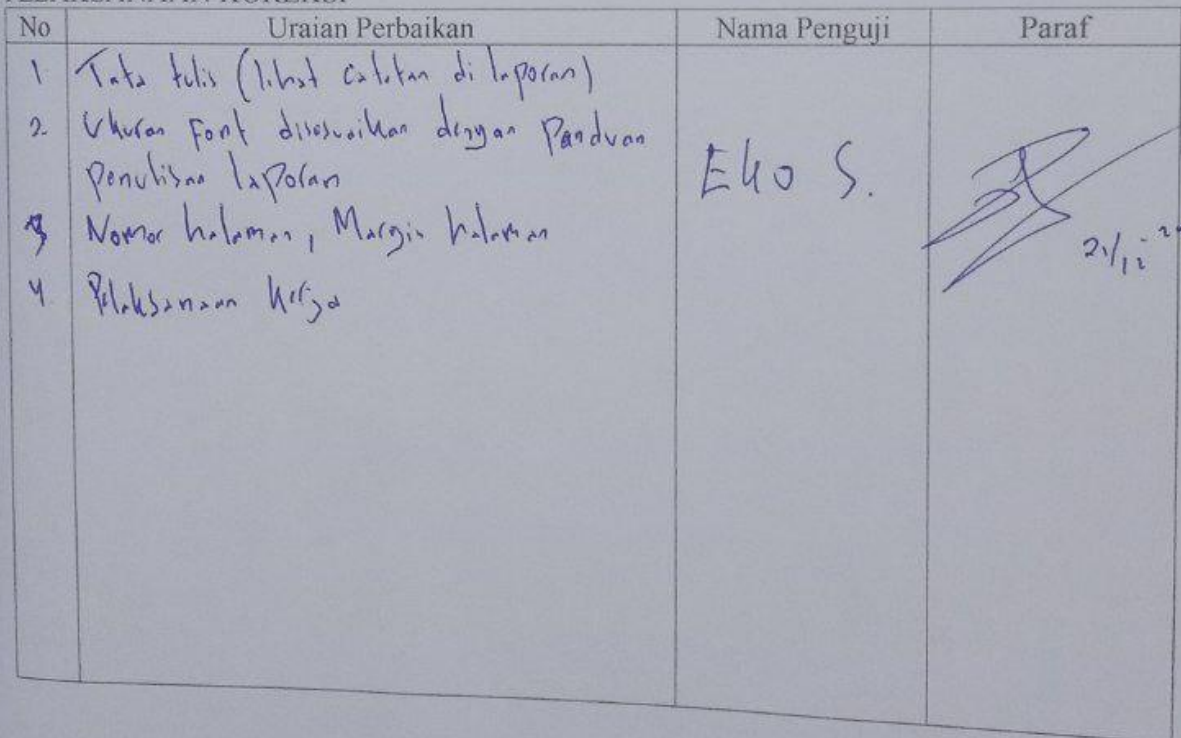 No Uraian Perbaikan Nama Penguji Paraf
1 Tata tulis (lihat catatan di laporan)
2. Ukuran Font disesuaikan dengan Panduan
penulisan laporan
Eko S.
3 Nomor halaman, Margin halaman
4 Pelaksanaan kerja